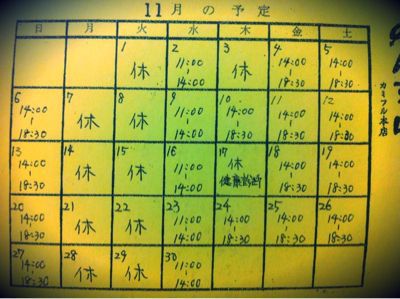 11月の予定
日 月 火 水 木 金 土
1 2 3 4 5
休 11:00 休 14:00 14:00
~ ~ ~
14:00 18:30 18:30
6 7 8 9 10 11 12
14:00 休 休 11:00 14:00 14:00 14:00
~ ~ ~ ~ ~
18:30 14:00 18:30 18:30 18:30
13 14 15 16 17 18 19
14:00 休 休 11:00 休 14:00 14:00
~ ~ 健康診断 ~ ~
18:30 14:00 18:30 18:30
20 21 22 23 24 25 26
14:00 休 休 11:00 14:00 14:00 14:00
~ ~ ~ ~ ~
18:30 14:00 18:30 18:30 18:30
27 28 29 30
14:00 休 休 11:00
~ ~
18:30 14:00
カミフル本店